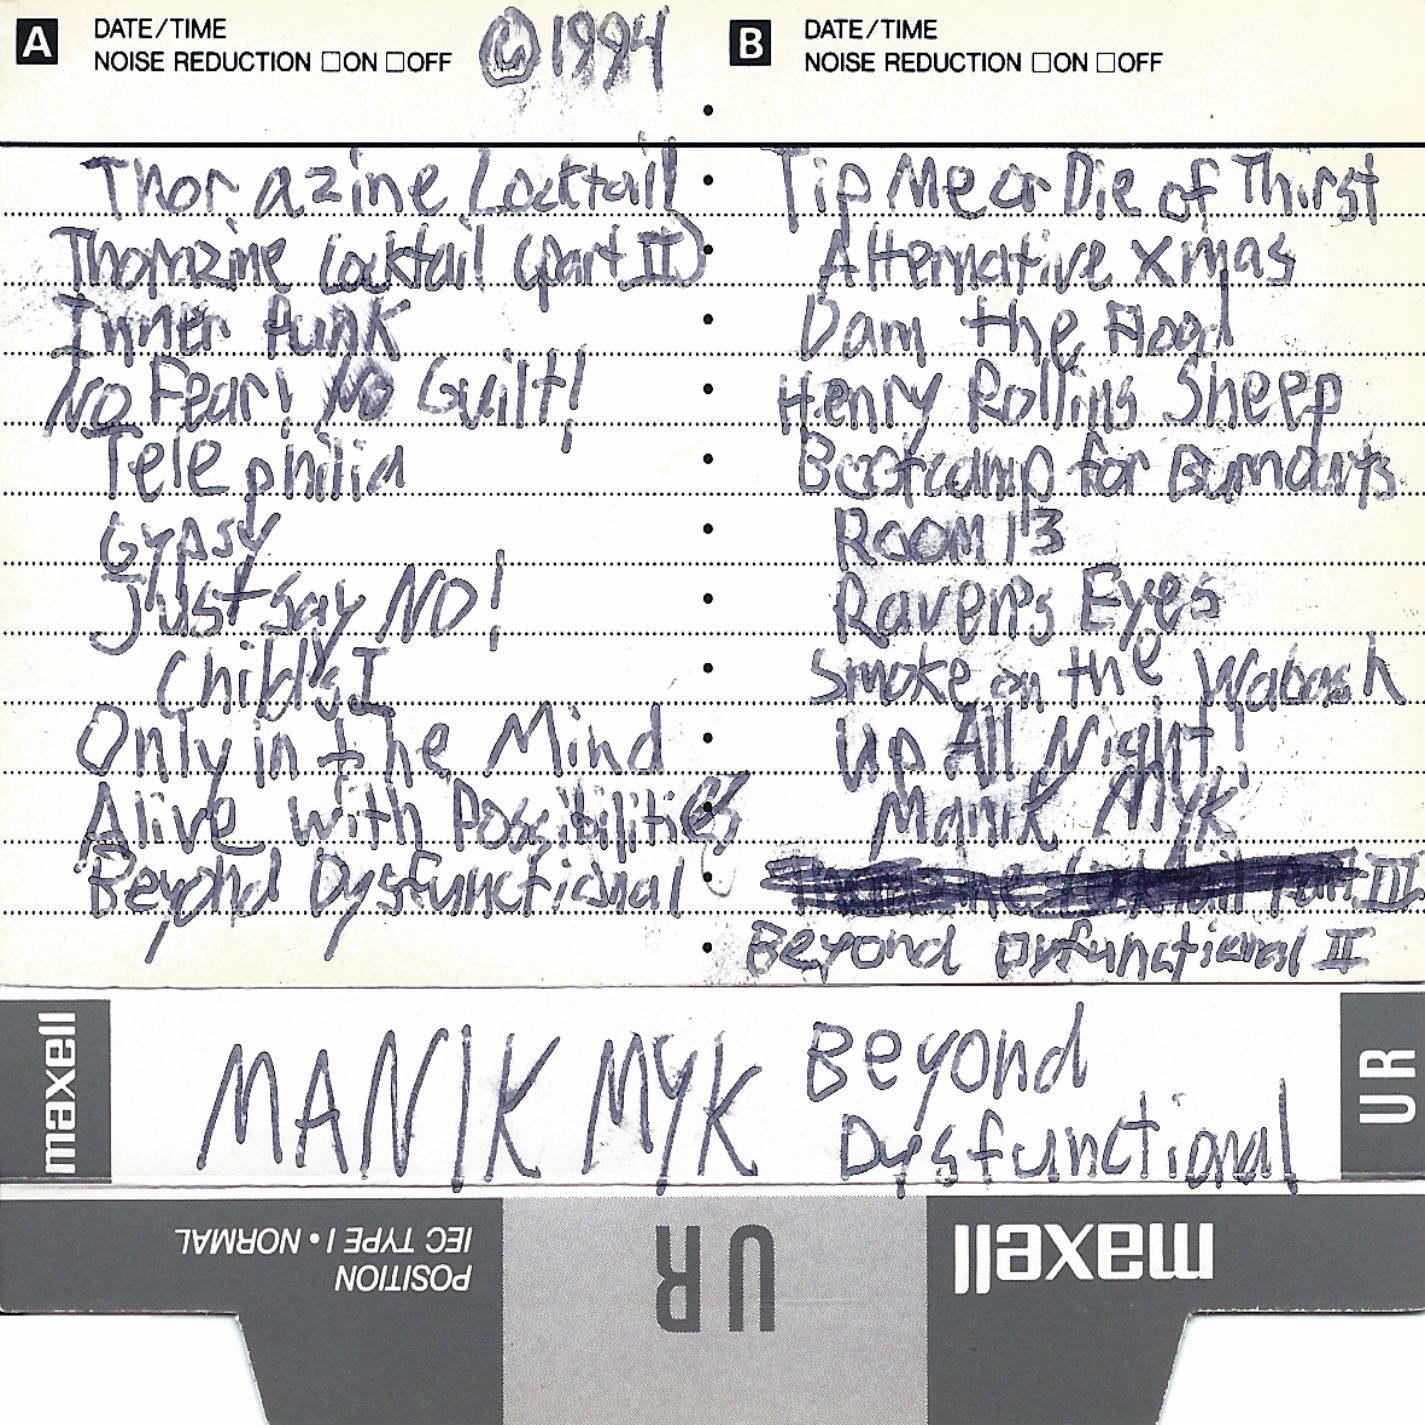 A DATE/TIME
NOISE REDUCTION □ON □OFF
© 1994
Thorazine Cocktail
Thorazine Cocktail (part II)
Inner Punk
No Fear! No Guilt!
Telephilia
Gypsy
Just Say NO!
Child's I
Only in the Mind
Alive with Possibilities
Beyond Dysfunctional
B DATE/TIME
NOISE REDUCTION □ON □OFF
Tip Me or Die of Thirst
Alternative Xmas
Dam the Flood
Henry Rollins Sheep
Bootcamp for Burnouts
Room 13
Raven's Eyes
Smoke on the Wabash
Up All Night!
Manik Myk
III
Beyond Dysfunctional II
maxell
MANIK MYK Beyond
Dysfunctional
UR
POSITION
IEC TYPE I • NORMAL
UR
maxell